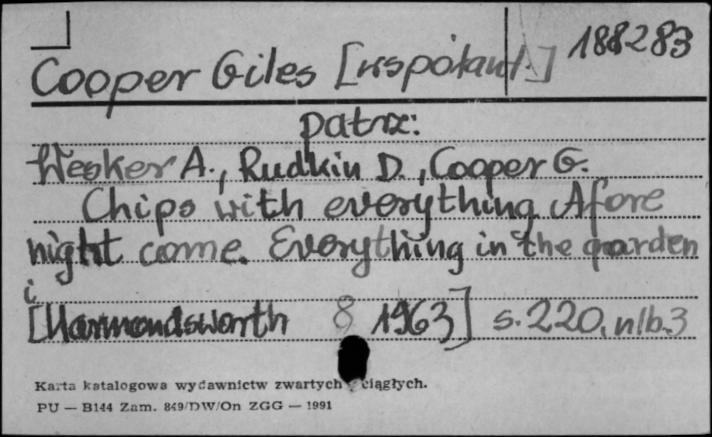 188283
Cooper Giles [współaut.]
patrz:
Wesker A., Rudkin D., Cooper G.
Chips with everything. Afore
night come. Everything in the garden
[Harmondsworth 8 1963] s. 220, nlb. 3
Karta katalogowa wydawnictw zwartych ciągłych.
PU — B144 Zam. 849/DW/On ZGG — 1991